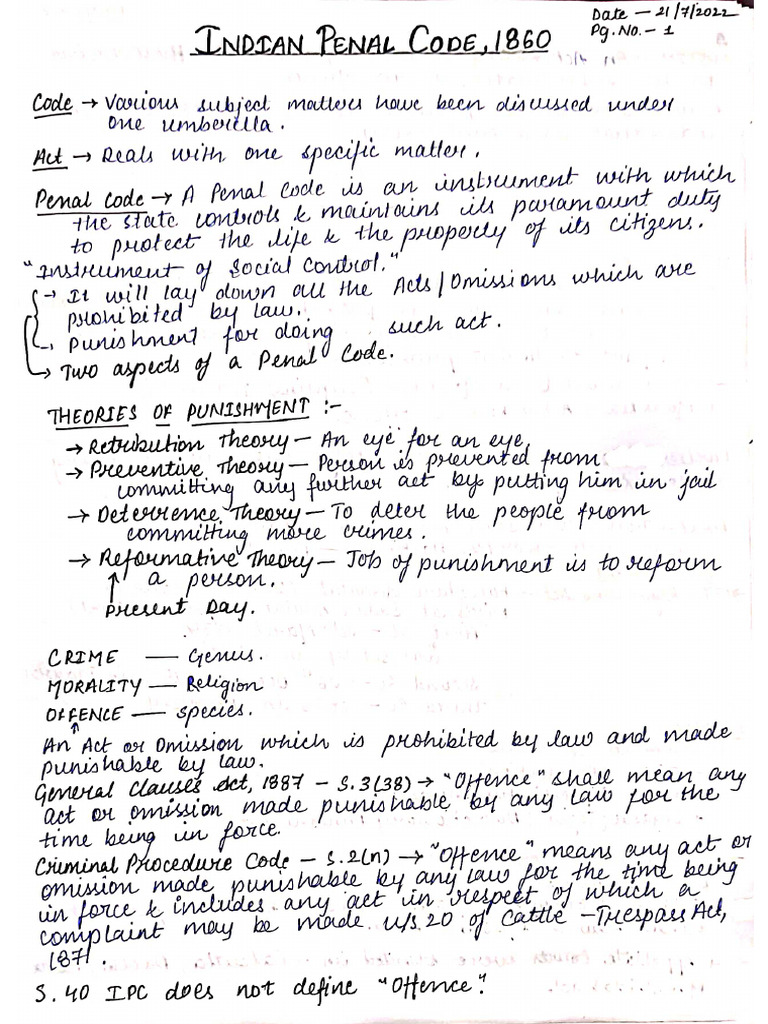 Date — 21/7/2022
Pg. No. - 1
INDIAN PENAL CODE, 1860
Code → Various subject matters have been discussed under
one umberella.
Act → Deals with one specific matter.
Penal Code → A Penal Code is an instrument with which
the state controls & maintains its paramount duty
to protect the life & the property of its citizens.
"Instrument of Social Control."
→ It will lay down all the Acts/Omissions which are
prohibited by law.
→ Punishment for doing such act.
→ Two aspects of a Penal Code.
THEORIES OF PUNISHMENT :-
→ Retribution Theory — An eye for an eye,
→ Preventive Theory — Person is prevented from
committing any further act by putting him in jail
→ Deterrence Theory — To deter the people from
committing more crimes.
→ Reformative Theory — Job of punishment is to reform
↑ a person.
Present Day.
CRIME — Genus.
MORALITY — Religion
OFFENCE — Species.
↑
An Act or Omission which is prohibited by law and made
punishable by law.
General Clauses Act, 1887 — S.3(38) → "Offence" shall mean any
act or omission made punishable by any law for the
time being in force.
Criminal Procedure Code — S.2(n) → "Offence" means any act or
omission made punishable by any law for the time being
in force & includes any act in respect of which a
complaint may be made u/s 20 of Cattle - Trespass Act,
1871.
S. 40 IPC does not define "Offence".